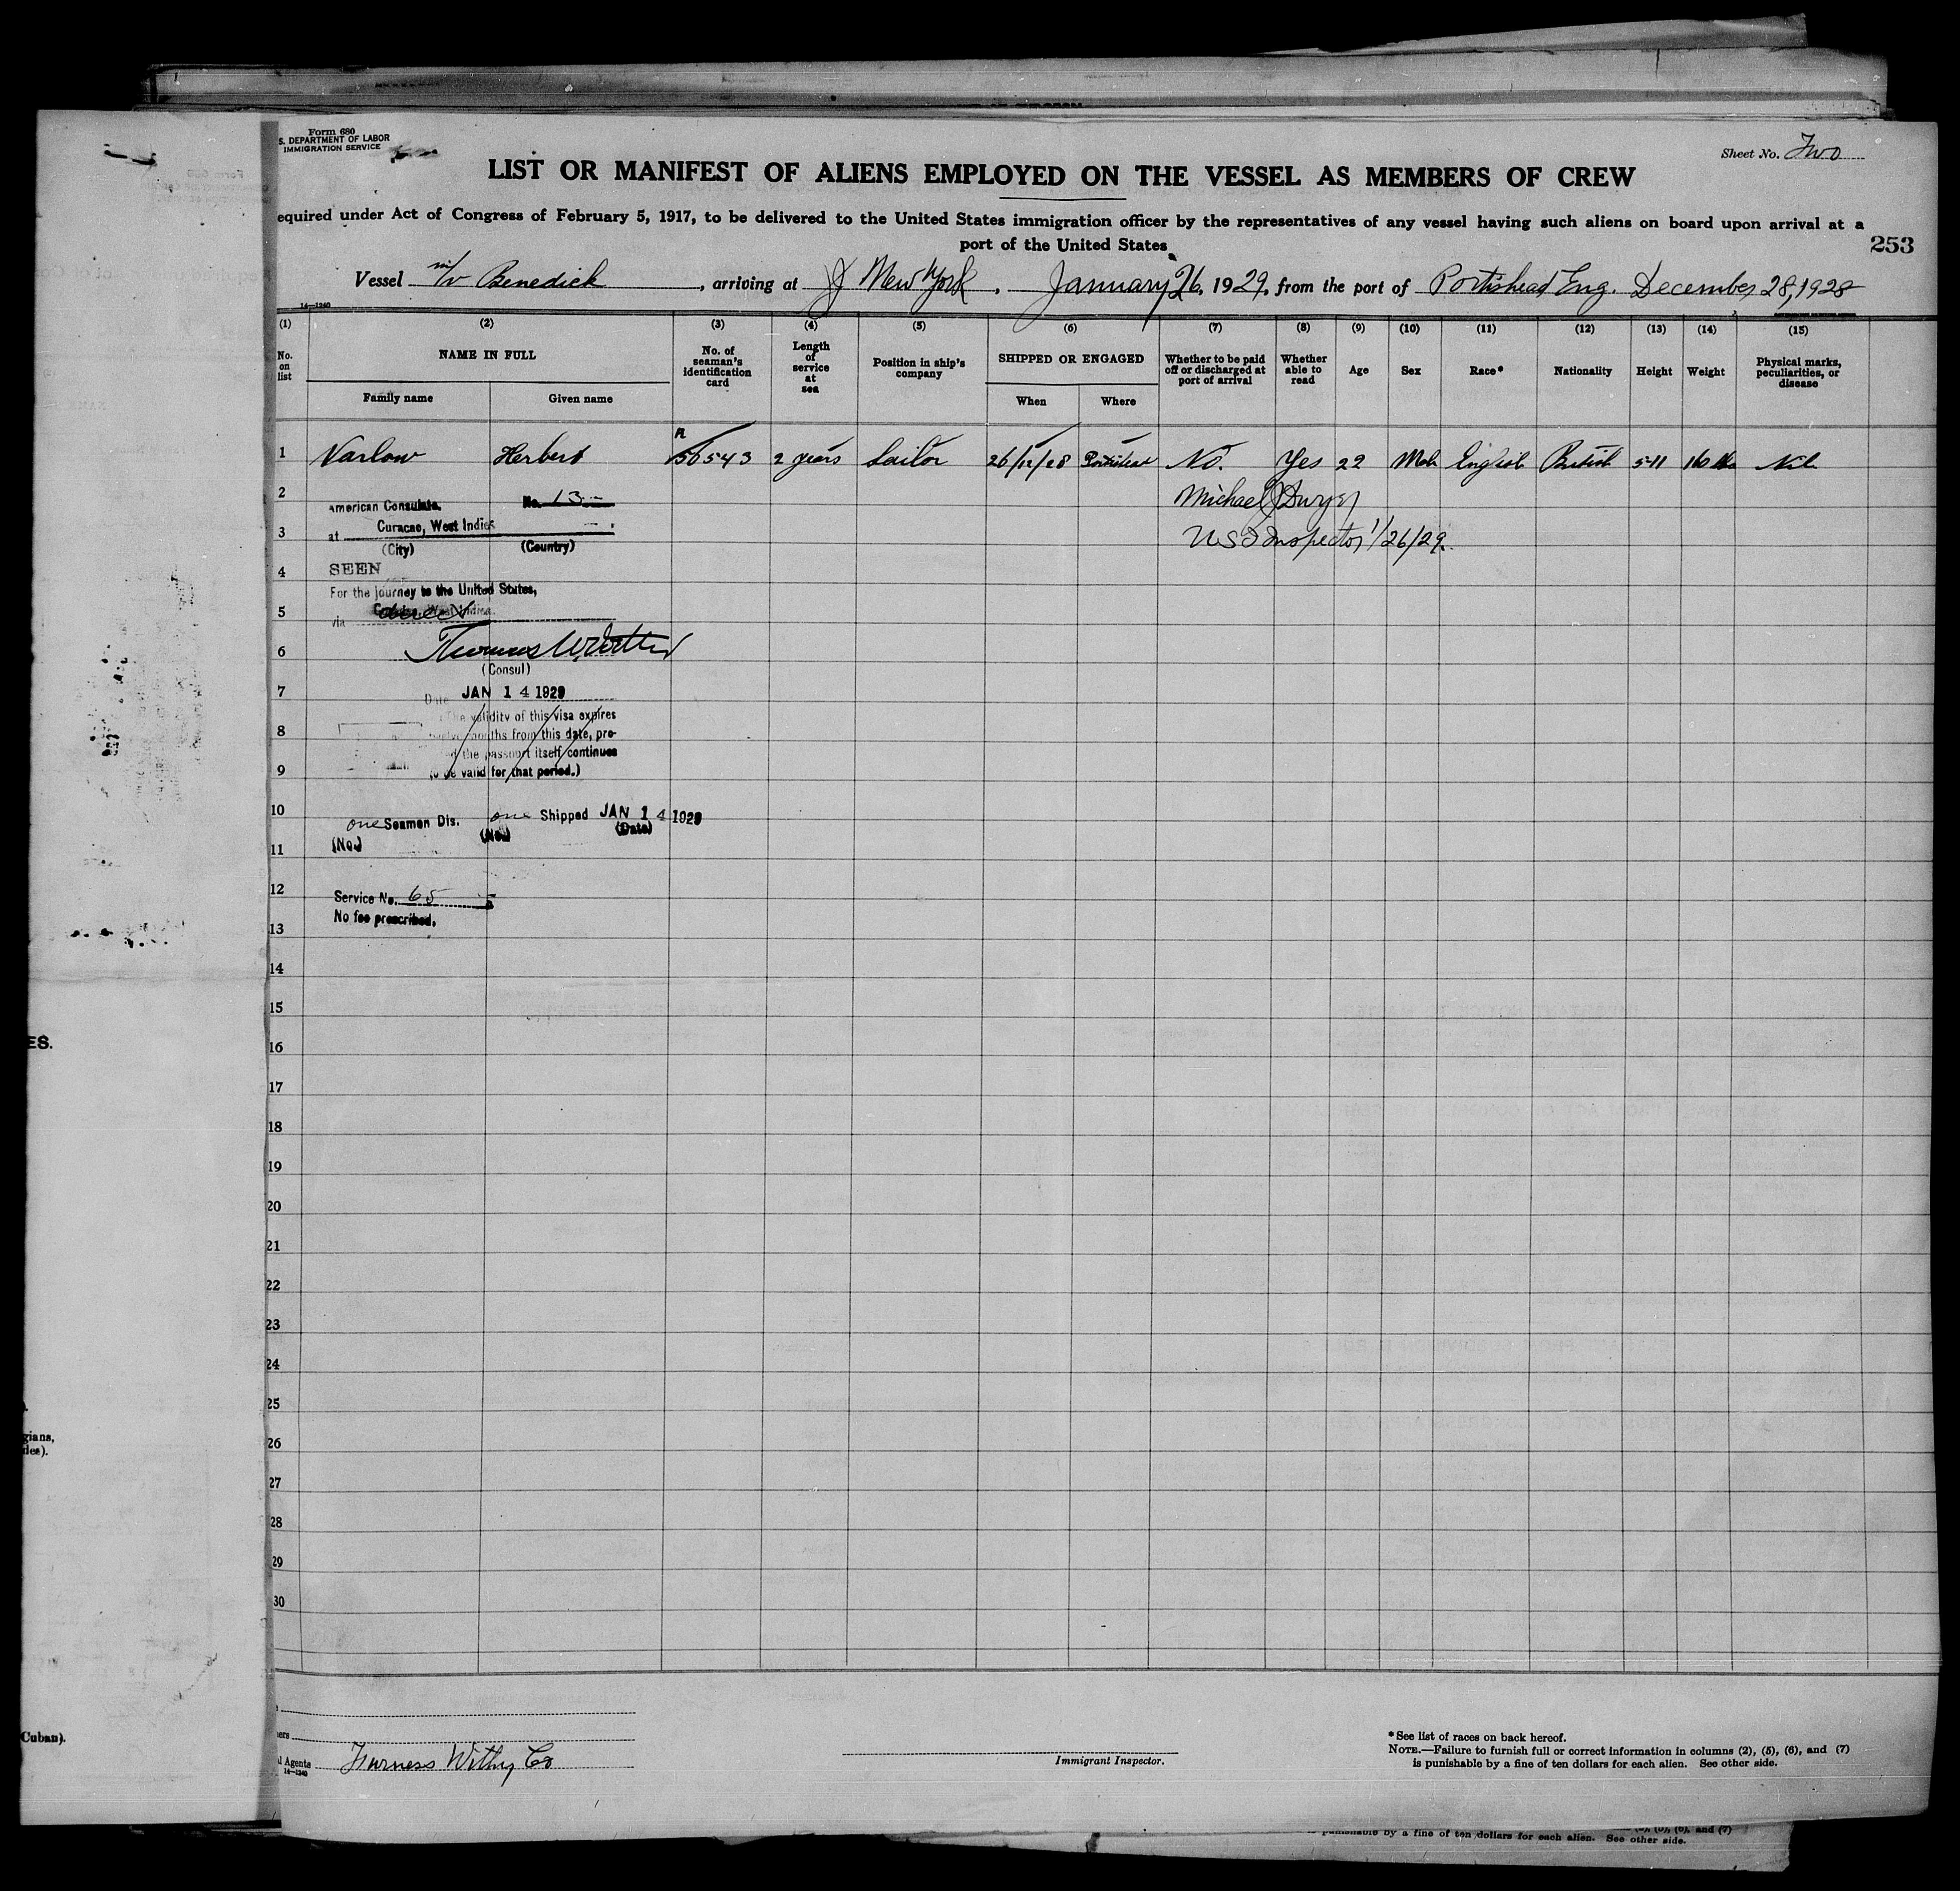 Form 680
S. DEPARTMENT OF LABOR
IMMIGRATION SERVICE
Sheet No. Two
LIST OR MANIFEST OF ALIENS EMPLOYED ON THE VESSEL AS MEMBERS OF CREW
equired under Act of Congress of February 5, 1917, to be delivered to the United States immigration officer by the representatives of any vessel having such aliens on board upon arrival at a
port of the United States
253
Vessel m/v Benedick, arriving at New York, January 26, 1929, from the port of Portishead Eng. December 28, 1928
14—1240
(1) (2) (3) (4) (5) (6) (7) (8) (9) (10) (11) (12) (13) (14) (15)
No. on list
NAME IN FULL
Family name
Given name
No. of seaman's identification card
Length of service at sea
Position in ship's company
SHIPPED OR ENGAGED
When
Where
Whether to be paid off or discharged at port of arrival
Whether able to read
Age
Sex
Race*
Nationality
Height
Weight
Physical marks, peculiarities, or disease
1 Varlow Herbert 56543 2 years Sailor 26/12/28 Portishead No. Yes 22 Male English British 5-11 160 lbs Nil
2
3
4
5
6
7
8
9
10
11
12
13
14
15
16
17
18
19
20
21
22
23
24
25
26
27
28
29
30
Michael J Dwyer
US Inspector 1/26/29.
American Consulate, No. 13
at Curacao, West Indies
(City) (Country)
SEEN
For the journey to the United States,
via direct
(Consul)
Date JAN 14 1929
The validity of this visa expires
twelve months from this date, pro-
ed the passport itself continues
to be valid for that period.)
one Seamen Dis. one Shipped JAN 14 1929
(No.) (No.) (Date)
Service No. 65
No fee prescribed.
ES.
gians,
des).
Cuban).
ers
l Agents Furness Withy Co
14—1240
Immigrant Inspector.
*See list of races on back hereof.
NOTE.—Failure to furnish full or correct information in columns (2), (5), (6), and (7)
is punishable by a fine of ten dollars for each alien. See other side.
(5), (6), and (7)
is punishable by a fine of ten dollars for each alien. See other side.